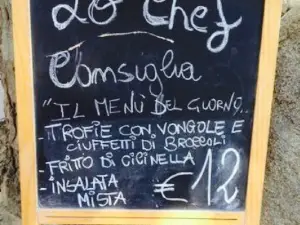 Lo Chef
Consiglia
"IL MENÙ DEL GIORNO..
- TROFIE CON VONGOLE E
CIUFFETTI DI BROCCOLI
- FRITTO DI CICINELLA
- INSALATA
MISTA
€ 12